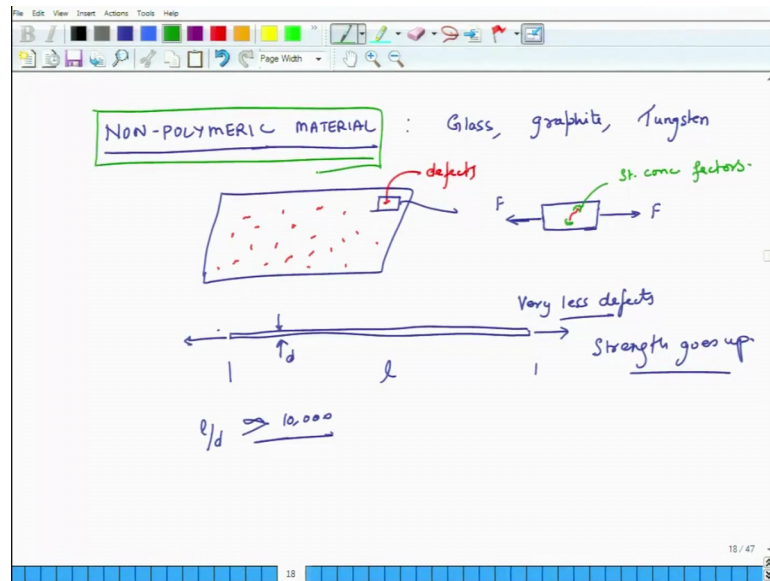 File Edit View Insert Actions Tools Help
B I
Page Width
NON-POLYMERIC MATERIAL : Glass, graphite, Tungsten
defects
St. conc factors.
F F
Very less defects
Strength goes up.
d
l
l/d > 10,000
18/47
18